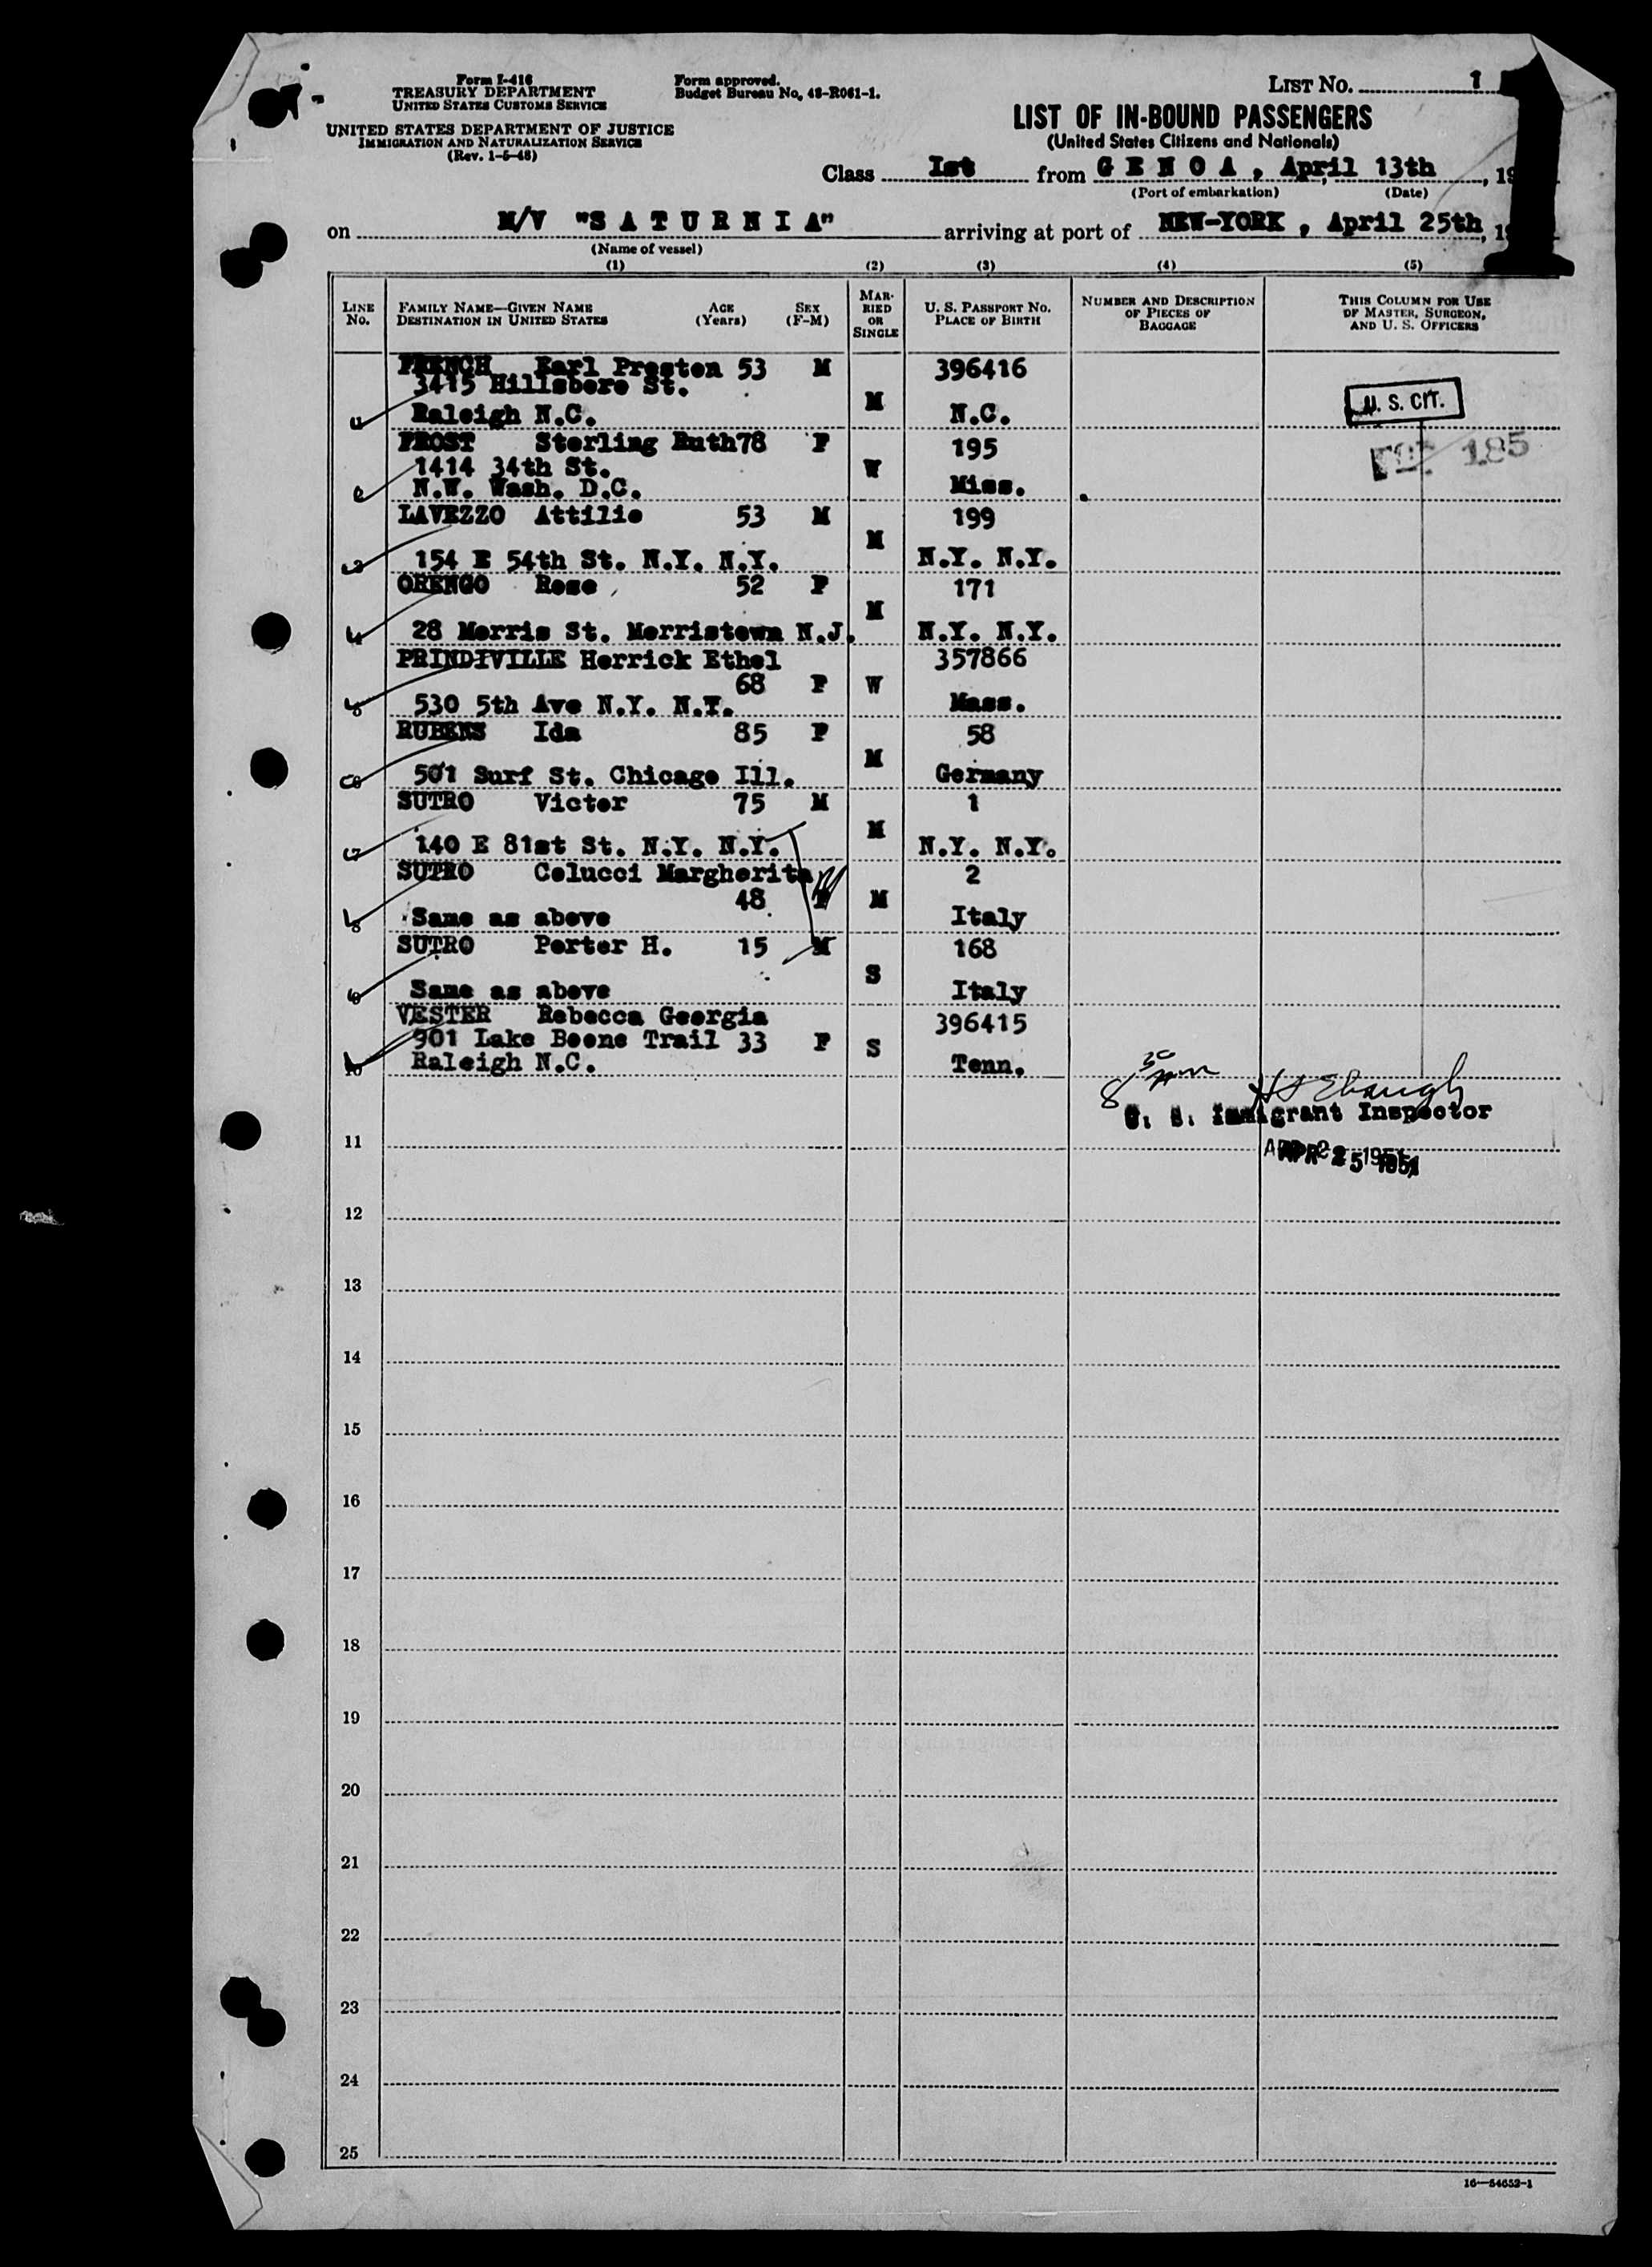 Form I-416
TREASURY DEPARTMENT
UNITED STATES CUSTOMS SERVICE
UNITED STATES DEPARTMENT OF JUSTICE
IMMIGRATION AND NATURALIZATION SERVICE
(Rev. 1-5-48)
Form approved.
Budget Bureau No. 43-R061-1.
LIST No. 1
1
LIST OF IN-BOUND PASSENGERS
(United States Citizens and Nationals)
Class Ist from G E N O A , April 13th, 19
(Port of embarkation) (Date)
on M/V "S A T U R N I A" arriving at port of NEW-YORK , April 25th, 19
(Name of vessel)
(1) (2) (3) (4) (5)
LINE No.
FAMILY NAME—GIVEN NAME AGE (Years) SEX (F-M)
DESTINATION IN UNITED STATES
MARRIED OR SINGLE
U. S. PASSPORT NO.
PLACE OF BIRTH
NUMBER AND DESCRIPTION OF PIECES OF BAGGAGE
THIS COLUMN FOR USE OF MASTER, SURGEON, AND U. S. OFFICERS
FRENCH Earl Preston 53 M 396416
3415 Hillsboro St.
1 Raleigh N.C. M N.C.
U. S. CIT.
FROST Sterling Ruth 78 F 195
185
1414 34th St. W
2 N.W. Wash. D.C. Miss.
LAVEZZO Attilio 53 M 199
M
3 154 E 54th St. N.Y. N.Y. N.Y. N.Y.
ORENGO Rose 52 F 171
M
4 28 Morris St. Morristown N.J. N.Y. N.Y.
PRINDIVILLE Herrick Ethel 357866
68 F W
5 530 5th Ave N.Y. N.Y. Mass.
RUBENS Ida 85 F 58
M
6 501 Surf St. Chicago Ill. Germany
SUTRO Victor 75 M 1
M
7 140 E 81st St. N.Y. N.Y. N.Y. N.Y.
SUTRO Colucci Margherita 2
48 F M
8 Same as above Italy
SUTRO Porter H. 15 M 168
S
9 Same as above Italy
VESTER Rebecca Georgia 396415
901 Lake Boone Trail 33 F S
10 Raleigh N.C. Tenn.
8 30
U. S. Immigrant Inspector
11
APR 25 1951
12
13
14
15
16
17
18
19
20
21
22
23
24
25
16—54652-1